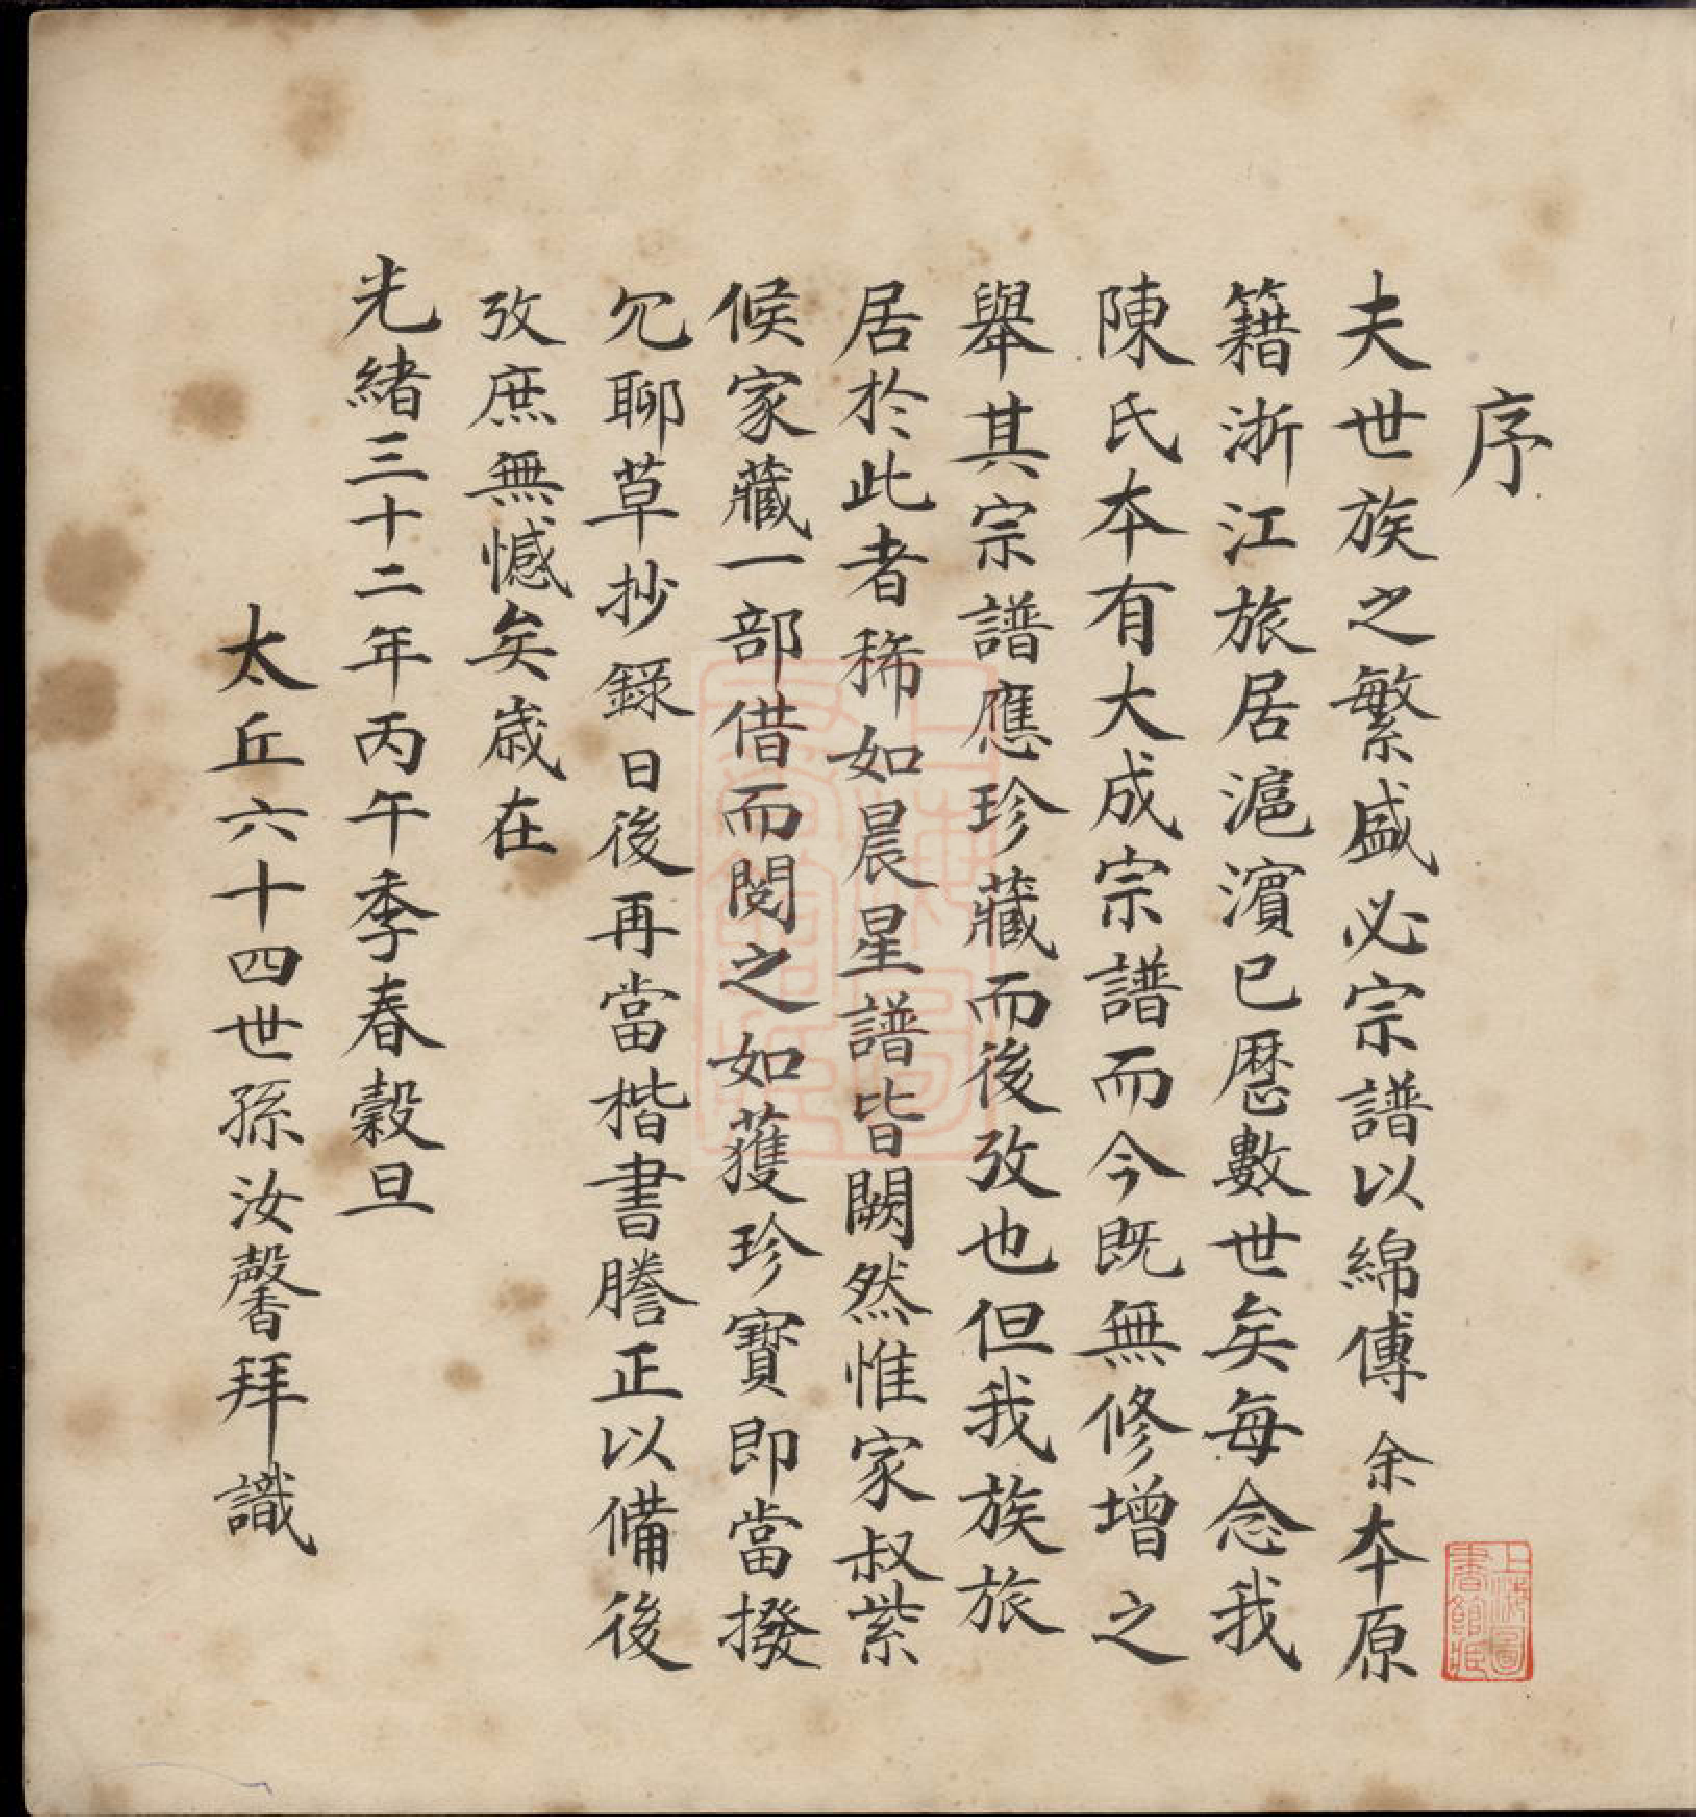 序
夫世族之繁盛必宗譜以綿傳余本原
籍浙江旅居滬濱已歷數世矣每念我
陳氏本有大成宗譜而今既無修增之
舉其宗譜應珍藏而後攷也但我族旅
居於此者稀如晨星譜皆闕然惟家叔紫
候家藏一部借而閱之如獲珍寶即當撥
冗聊草抄錄日後再當楷書謄正以備後
攷庶無憾矣歲在
光緒三十二年丙午季春穀旦
太丘六十四世孫汝馨拜識
上海圖書館藏
上海圖書館藏